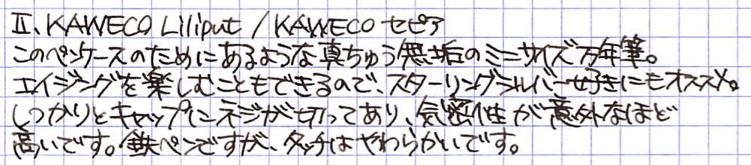 II. KAWECO Liliput / KAWECO セピア
このペンケースのためにあるような真ちゅう無垢のミニサイズ万年筆。
エイジングを楽しむこともできるので、スターリングシルバー好きにもオススメ。
しっかりとキャップにネジが切ってあり、気密性が意外なほど
高いです。鉄ペンですが、タッチはやわらかいです。